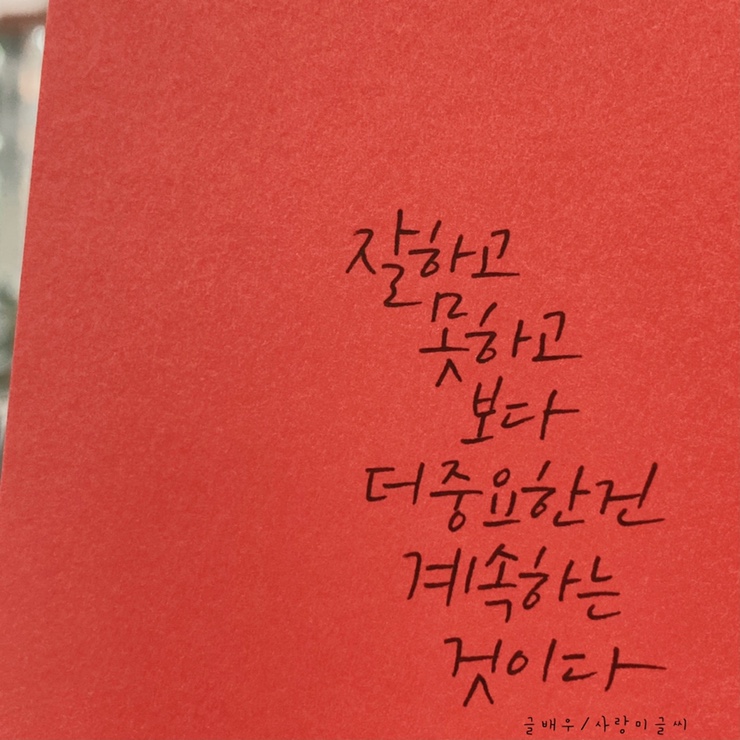 잘하고
못하고
보다
더 중요한건
계속하는
것이다
글배우/사랑미글씨